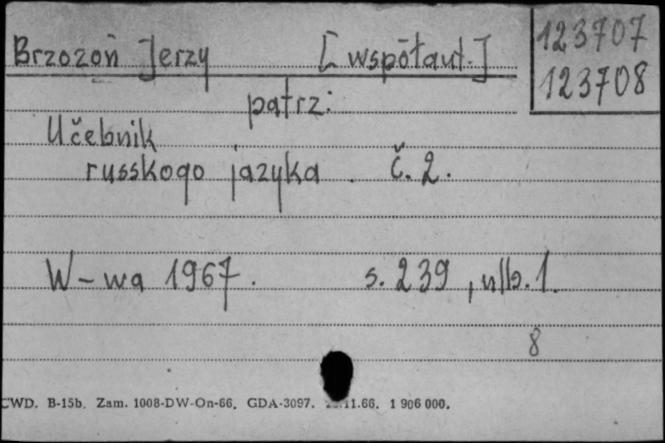 Brzozoń Jerzy [współaut.]
123707
123708
patrz:
Učebnik
russkogo jazyka. č. 2.
W-wa 1967. s. 239, nlb. 1.
8
CWD. B-15b. Zam. 1008-DW-On-66. GDA-3097. 11.66. 1 906 000.